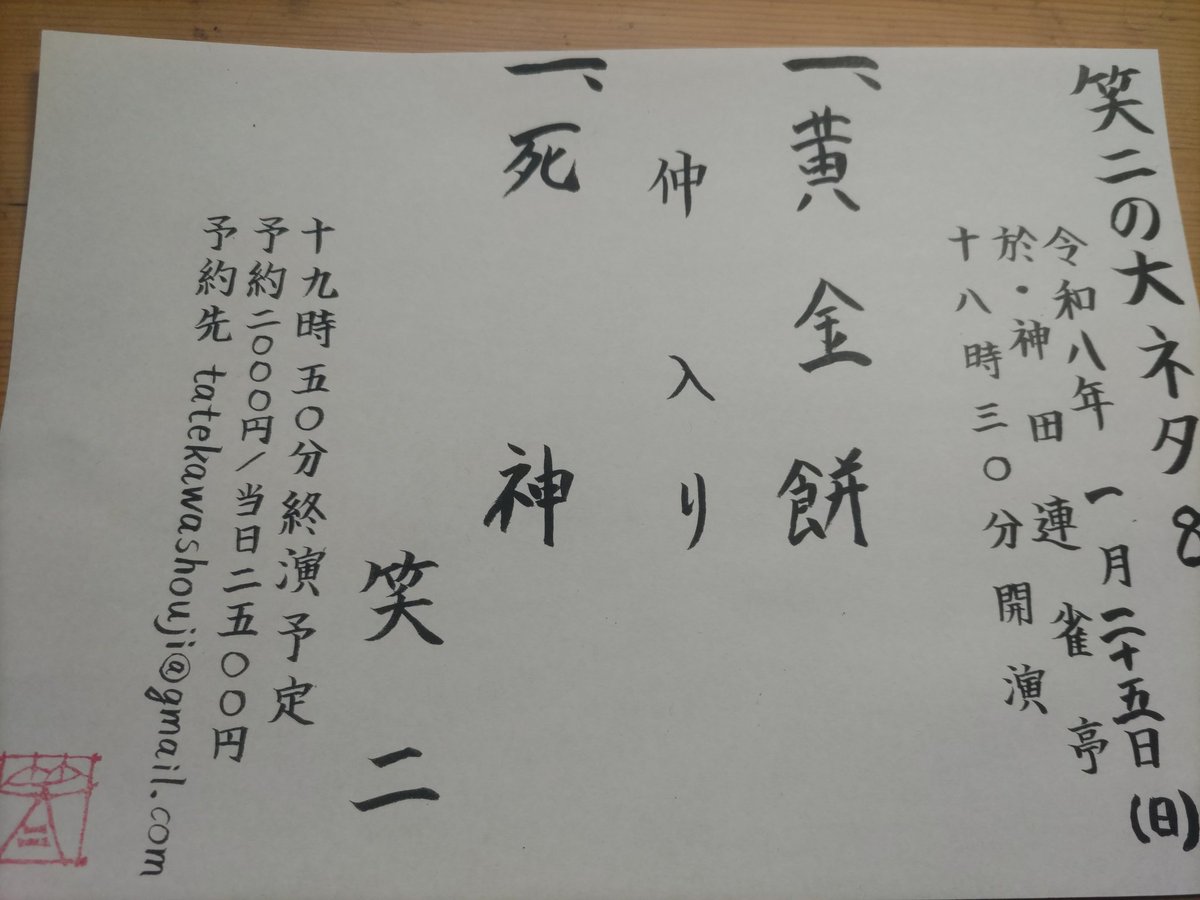 笑二の大ネタ8
令和八年 一月二十五日(日)
於・神田連雀亭
十八時三〇分開演
一、黄金餅
仲入り
一、死神
笑二
十九時五〇分終演予定
予約二〇〇〇円/当日二五〇〇円
予約先 tatekawashouji@gmail.com